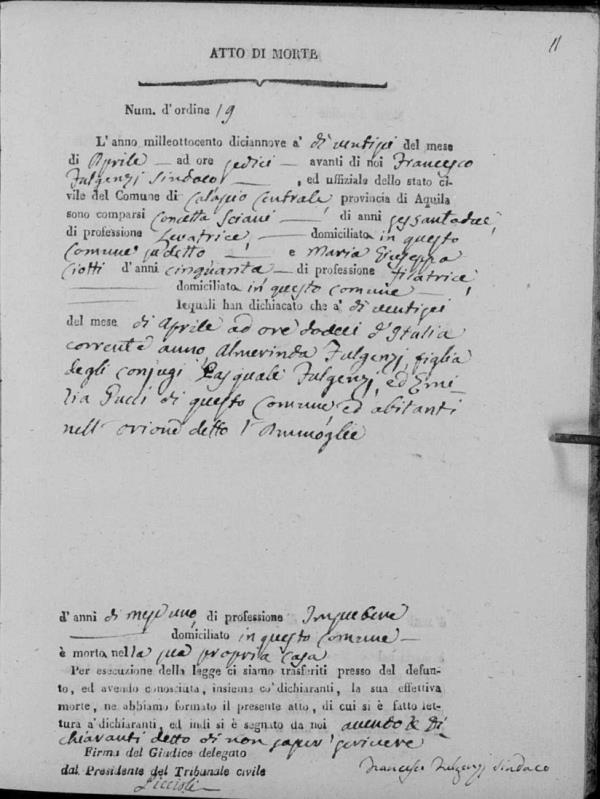 11
ATTO DI MORTE
Num. d'ordine 19
L'anno milleottocento diciannove a' di ventisei del mese
di Aprile ad ore sedici avanti di noi Francesco
Fulgenzj Sindaco , ed uffiziale dello stato ci-
vile del Comune di Calascio Centrale provincia di Aquila
sono comparsi Concetta di anni sessantadue
di professione Levatrice domiciliata in questo
comune sudetto e Maria Giuseppa
Ciotti d'anni cinquanta di professione filatrice
domiciliato in questo comune
lequali han dichiacato che a' di ventisei
del mese di Aprile ad ore dodeci d'Italia
corrente anno, Almerinda Fulgenzj figlia
degli conjugi Pasquale Fulgenzj, ed Emi
lia di questo comune ed abitanti
nell' orione detto
d'anni di mesi uno, di professione
domiciliato in questo comune
è morta nella sua propria casa
Per esecuzione della legge ci siamo trasferiti presso del defun-
to, ed avendo conosciuta, insieme co' dichiaranti, la sua effettiva
morte, ne abbiamo formato il presente atto, di cui si è fatto let-
tura a' dichiaranti, ed indi si è segnato da noi avendo le Di
chiaranti detto di non saper scrivere
Firma del Giudice delegato
dal Presidente del Tribunale civile
Francesco Fulgenzj Sindaco